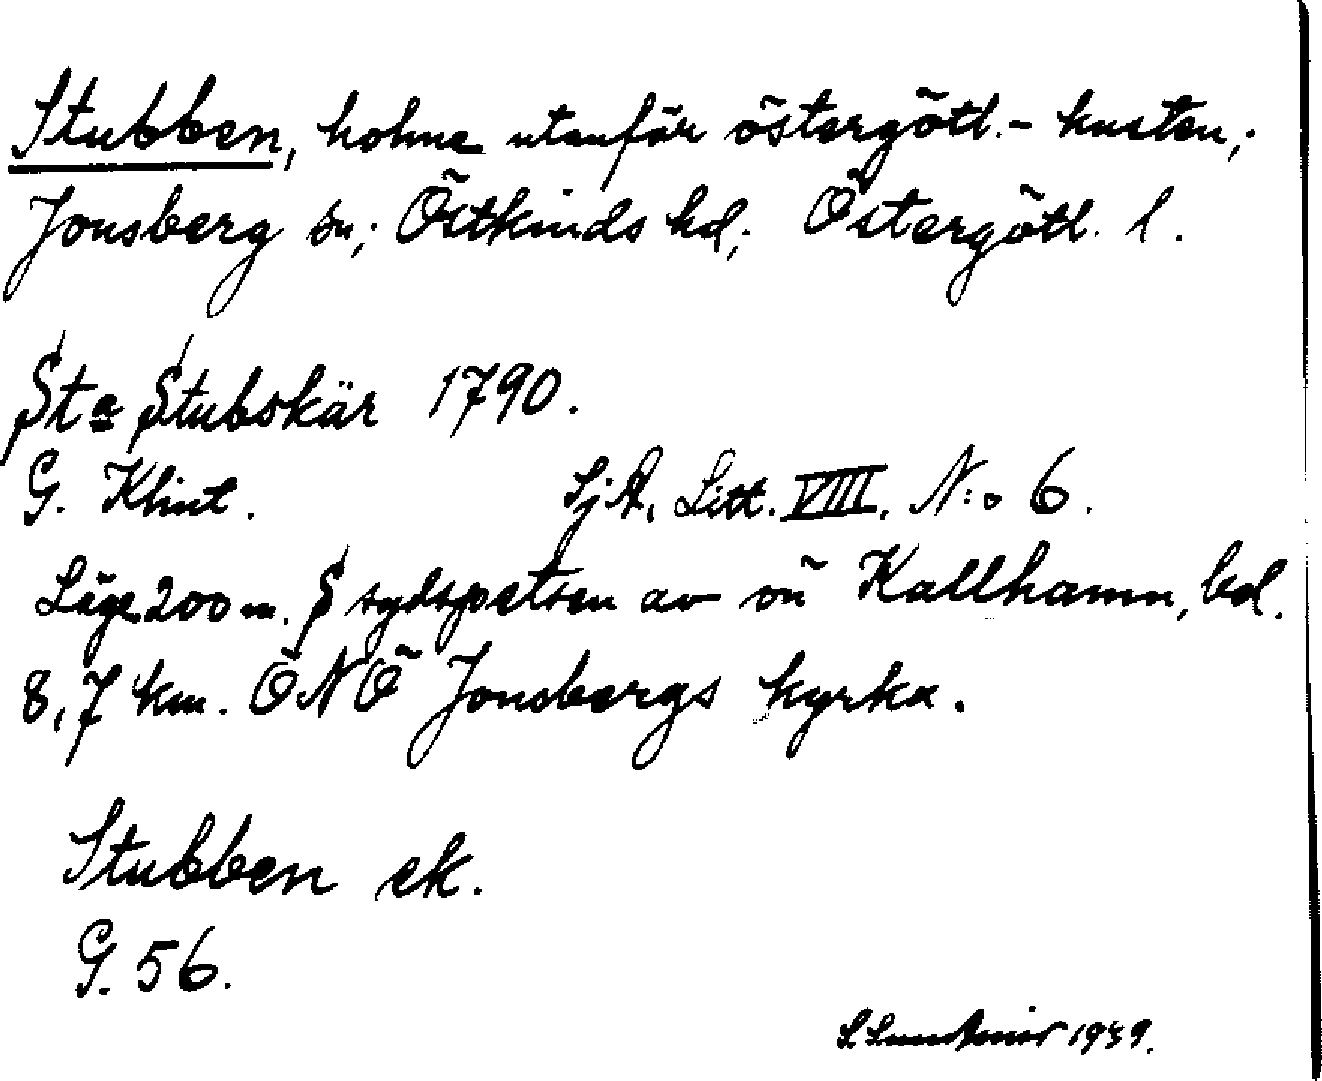 Stubben, holme utanför östergötl.- kusten;
Jonsberg sn; Östkinds hd; Östergötl. l.
Sta Stubskär 1790.
G. Klint. SjA, Litt. VIII, N:o 6.
Läge 200 m. S sydspetsen av ön Kallhamn, bd.
8,7 km. ÖNÖ Jonsbergs kyrka.
Stubben ek.
G. 56.
S. 1939.